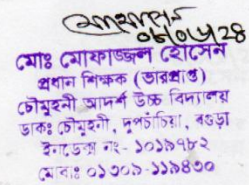 ০৮/০৮/২৪
মোঃ মোফাজ্জল হোসেন
প্রধান শিক্ষক (ভারপ্রাপ্ত)
চৌমুহনী আদর্শ উচ্চ বিদ্যালয়
ডাকঃ চৌমুহনী, দুপচাঁচিয়া, বগুড়া
ইনডেক্স নং- ১০১৯৭৮২
মোবাঃ ০১৩০৯-১১৯৪৩০